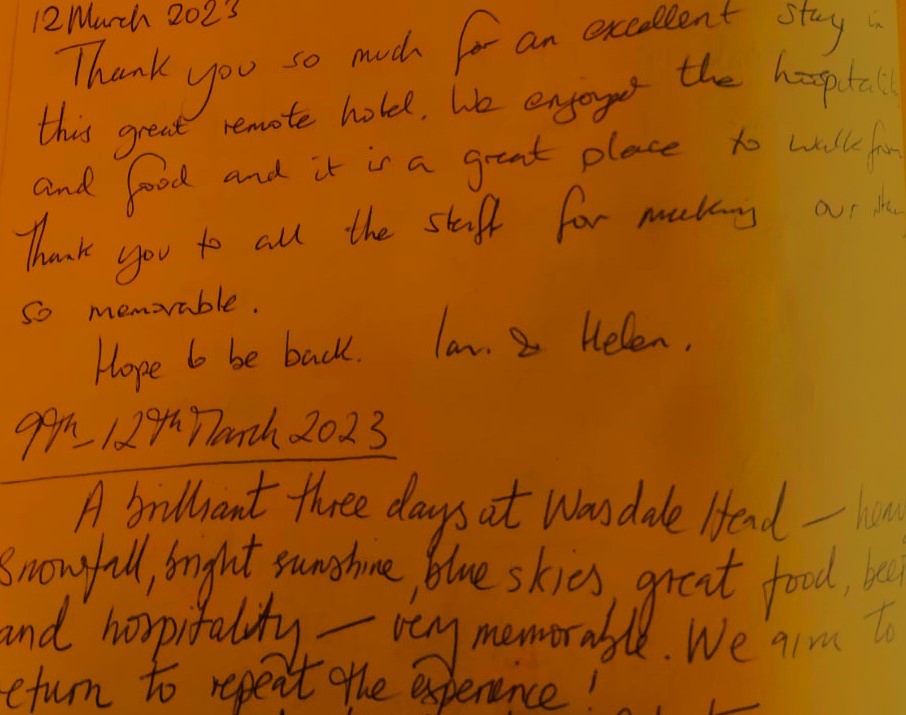 12 March 2023
Thank you so much for an excellent stay in
this great remote hotel. We enjoyed the hospitali
and food and it is a great place to walk from
Thank you to all the staff for making our
so memorable.
Hope to be back. Ian & Helen.
9th - 12th March 2023
A brilliant three days at Wasdale Head - heav
Snowfall, bright sunshine, blue skies, great food, beer
and hospitality - very memorable. We aim to
return to repeat the experience!